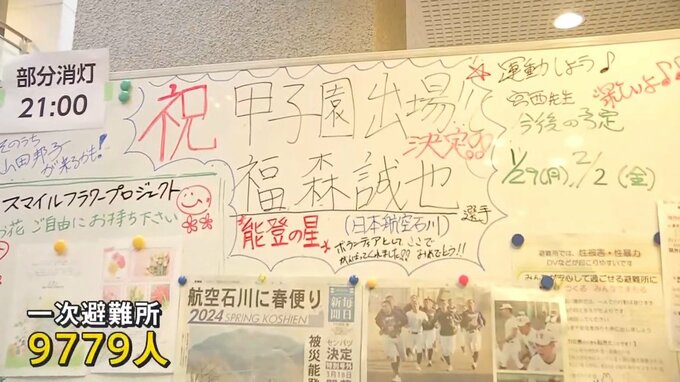 部分消灯
21:00
そのうち
山田邦子
が来るかも!
スマイルフラワープロジェクト
お花 ご自由にお持ち下さい
祝 甲子園出場!!
決定!!
福森誠也
選手
能登の星
(日本航空石川)
ボランティアとして、ここで
がんばってくれました!! おめでとう!!
運動しよう♪
宮西先生
今後の予定
1/29(月) 2/2(金)
航空石川に春便り
2024 SPRING KOSHIEN
毎日新聞
センバツ
決定
特別号外
1月18日
被災能登
避難所では、性被害・性暴力
DVなどが起こりやすいです
みんなが安心して過ごせる避難所に
一次避難所
9779人